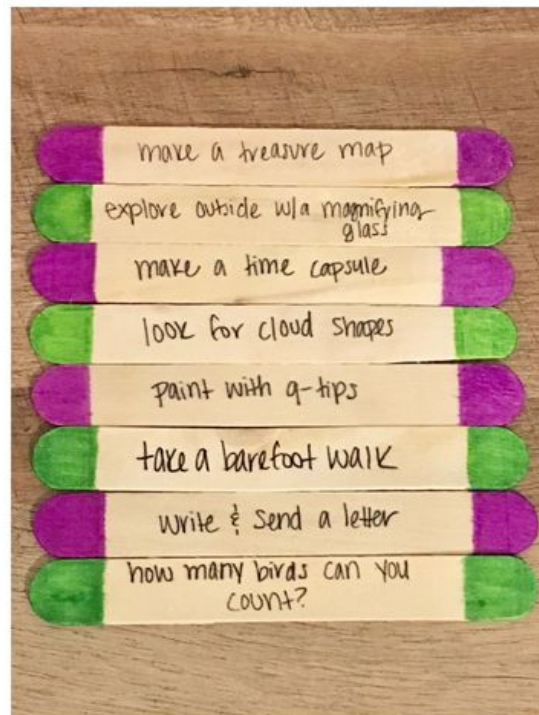 make a treasure map
explore outside w/a magnifying
glass
make a time capsule
look for cloud shapes
paint with q-tips
take a barefoot walk
write & send a letter
how many birds can you
count?